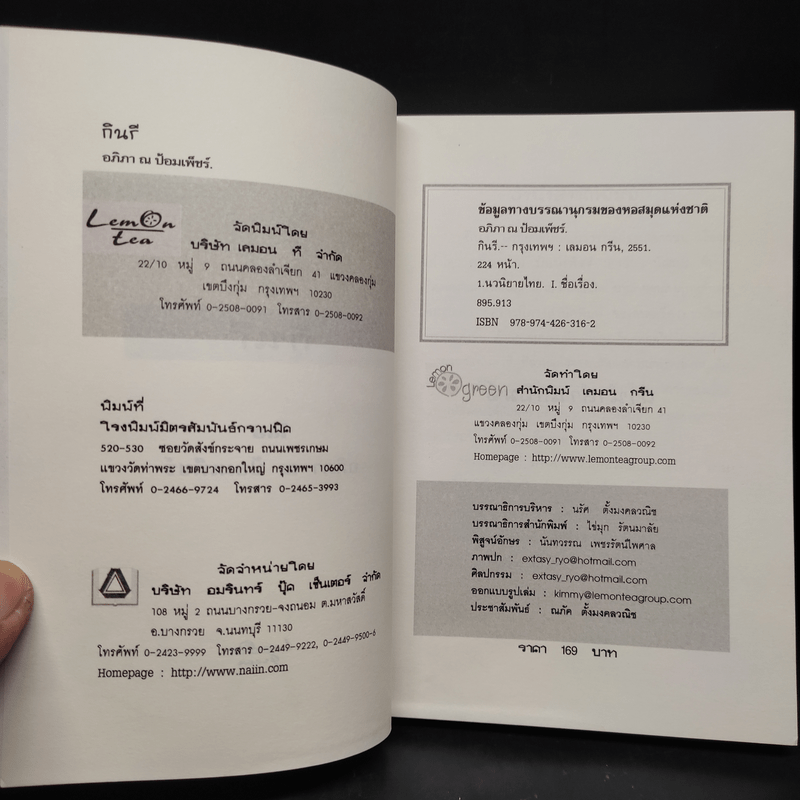 กินรี
อภิภา ณ ป้อมเพ็ชร์.
LemOn
tea
จัดพิมพ์โดย
บริษัท เลมอน ที จำกัด
22/10 หมู่ 9 ถนนคลองลำเจียก 41 แขวงคลองกุ่ม
เขตบึงกุ่ม กรุงเทพฯ 10230
โทรศัพท์ 0-2508-0091 โทรสาร 0-2508-0092
พิมพ์ที่
โรงพิมพ์มิตรสัมพันธ์กราฟฟิค
520-530 ซอยวัดสังข์กระจาย ถนนเพชรเกษม
แขวงวัดท่าพระ เขตบางกอกใหญ่ กรุงเทพฯ 10600
โทรศัพท์ 0-2466-9724 โทรสาร 0-2465-3993
จัดจำหน่ายโดย
บริษัท อมรินทร์ บุ๊ค เซ็นเตอร์ จำกัด
108 หมู่ 2 ถนนบางกรวย-จงถนอม ต.มหาสวัสดิ์
อ.บางกรวย จ.นนทบุรี 11130
โทรศัพท์ 0-2423-9999 โทรสาร 0-2449-9222, 0-2449-9500-6
Homepage : http://www.naiin.com
ข้อมูลทางบรรณานุกรมของหอสมุดแห่งชาติ
อภิภา ณ ป้อมเพ็ชร์.
กินรี.-- กรุงเทพฯ : เลมอน กรีน, 2551.
224 หน้า.
1.นวนิยายไทย. I. ชื่อเรื่อง.
895.913
ISBN 978-974-426-316-2
lemon
green
จัดทำโดย
สำนักพิมพ์ เลมอน กรีน
22/10 หมู่ 9 ถนนคลองลำเจียก 41
แขวงคลองกุ่ม เขตบึงกุ่ม กรุงเทพฯ 10230
โทรศัพท์ 0-2508-0091 โทรสาร 0-2508-0092
Homepage : http://www.lemonteagroup.com
บรรณาธิการบริหาร : นรัศ ตั้งมงคลวณิช
บรรณาธิการสำนักพิมพ์ : ไข่มุก รัตนมาลัย
พิสูจน์อักษร : นันทวรรณ เพชรรัตน์ไพศาล
ภาพปก : extasy_ryo@hotmail.com
ศิลปกรรม : extasy_ryo@hotmail.com
ออกแบบรูปเล่ม : kimmy@lemonteagroup.com
ประชาสัมพันธ์ : ณภัค ตั้งมงคลวณิช
ราคา 169 บาท